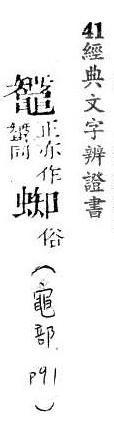 41經典文字辨證書
鼅正亦作同
蜘俗(黽部 P91)